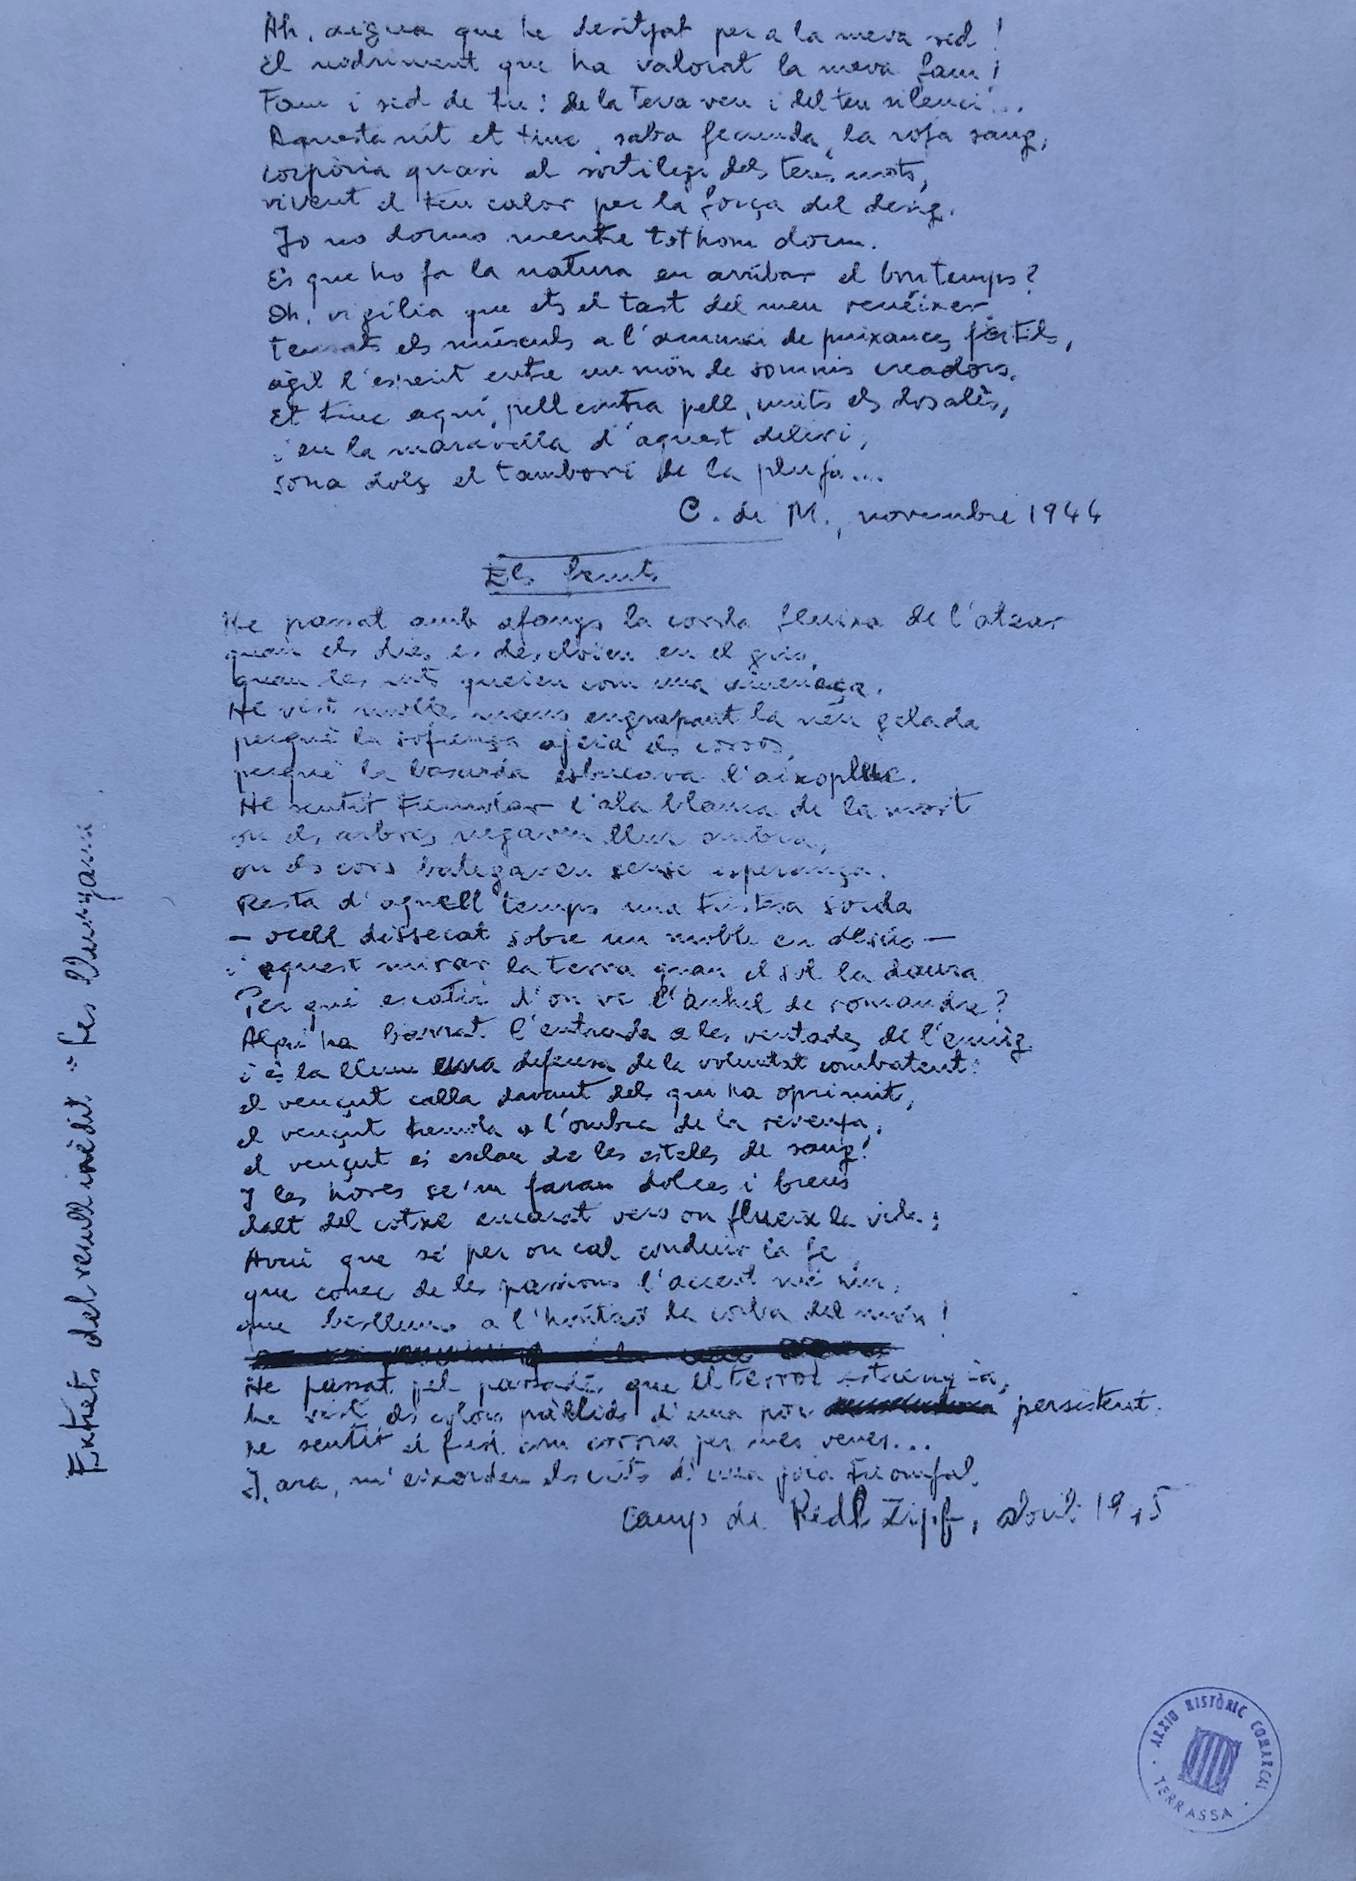 Ah, aigua que he desitjat per a la meva sed!
El nodriment que ha valorat la meva fam!
Fam i sed de tu: de la teva veu i del teu silenci...
Aquesta nit et tinc, saba fecunda, la roja sang,
corpòria quasi al sortilegi dels teus mots,
vivent el teu calor per la força del desig.
Jo no dormo mentre tothom dorm.
És que ho fa la natura en arribar el bon temps?
Oh, vigília que ets el tast del meu renéixer
tensats els músculs a l'anunci de puixances fèrtils,
àgil l'esperit entre un món de somnis creadors.
Et tinc aquí, pell contra pell, units els dos alès,
i en la maravella d'aquest deliri,
sona dolç el tamborí de la pluja...
C. de M., novembre 1944
Els vençuts
He passat amb afanys la corda fluixa de l'atzar
quan els dies es desclovien en el gris,
quan les nits queien com una amenaça.
He vist moltes mans engrapant la neu gelada
perquè la sofrença ajeia els cossos,
perquè la basarda esbucava l'aixopluc.
He sentit tremolar l'ala blanca de la mort
on els arbres negaven llur ombra,
on els cors bategaven sense esperança.
Resta d'aquell temps una tristesa sorda
— ocell dissecat sobre un moble en desús —
i aquest mirar la terra quan el sol la daura.
Per què escatir d'on ve l'anhel de romandre?
Algú ha barrat l'entrada a les ventades de l'enuig
i és la llum una defensa de la voluntat combatent:
el vençut calla davant dels qui ha oprimit,
el vençut tremola a l'ombra de la revenja,
el vençut és esclau de les esteles de sang!
I les hores se'm faran dolces i breus
dalt del cotxe encarat vers on flueix la vida;
Avui que sé per on cal conduir la fe
que conec de les passions l'accent més viu,
que besllumo a l'horitzó la corba del món!
He passat pel paradís que el terror estrenyia,
he vist els colors pàl·lids d'una por persistent.
he sentit el fred com corria per mes venes...
I, ara, m'eixorden els crits d'una joia triomfal.
Camp de Redl Zipf, abril 1945
Extrets del recull inèdit "Les llunyanies
ARXIU HISTÒRIC COMARCAL
· TERRASSA ·